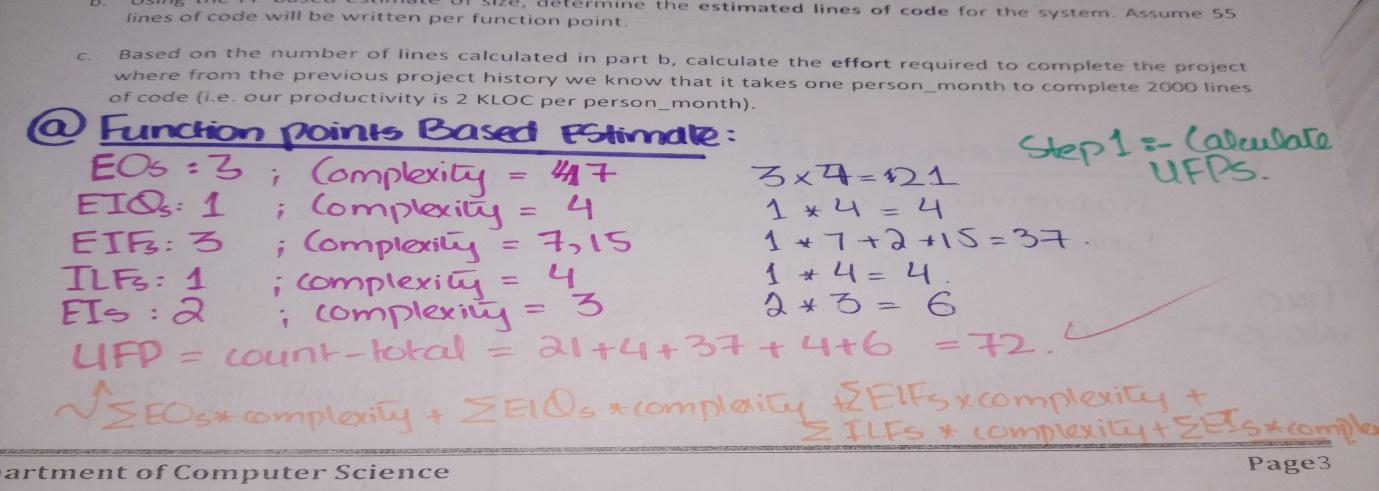 b. Using the FP based estimate of size, determine the estimated lines of code for the system. Assume 55
lines of code will be written per function point.
c. Based on the number of lines calculated in part b, calculate the effort required to complete the project
where from the previous project history we know that it takes one person_month to complete 2000 lines
of code (i.e. our productivity is 2 KLOC per person_month).
@ Function points Based Estimate:
Step 1 :- Calculate
UFPS.
EOs : 3 ; Complexity = 7 3 x 7 = 21
EIQs: 1 ; Complexity = 4 1 * 4 = 4
EIFs: 3 ; Complexity = 7,15 1 * 7 + 2 * 15 = 37.
ILFs: 1 ; complexity = 4 1 * 4 = 4.
EIs : 2 ; complexity = 3 2 * 3 = 6
UFP = count-total = 21+4+37+4+6 = 72.
ΣEOs* complexity + ΣEIQs *complexity + ΣEIFs x complexity +
Σ ILFs * complexity + ΣEIs *comple
artment of Computer Science
Page3